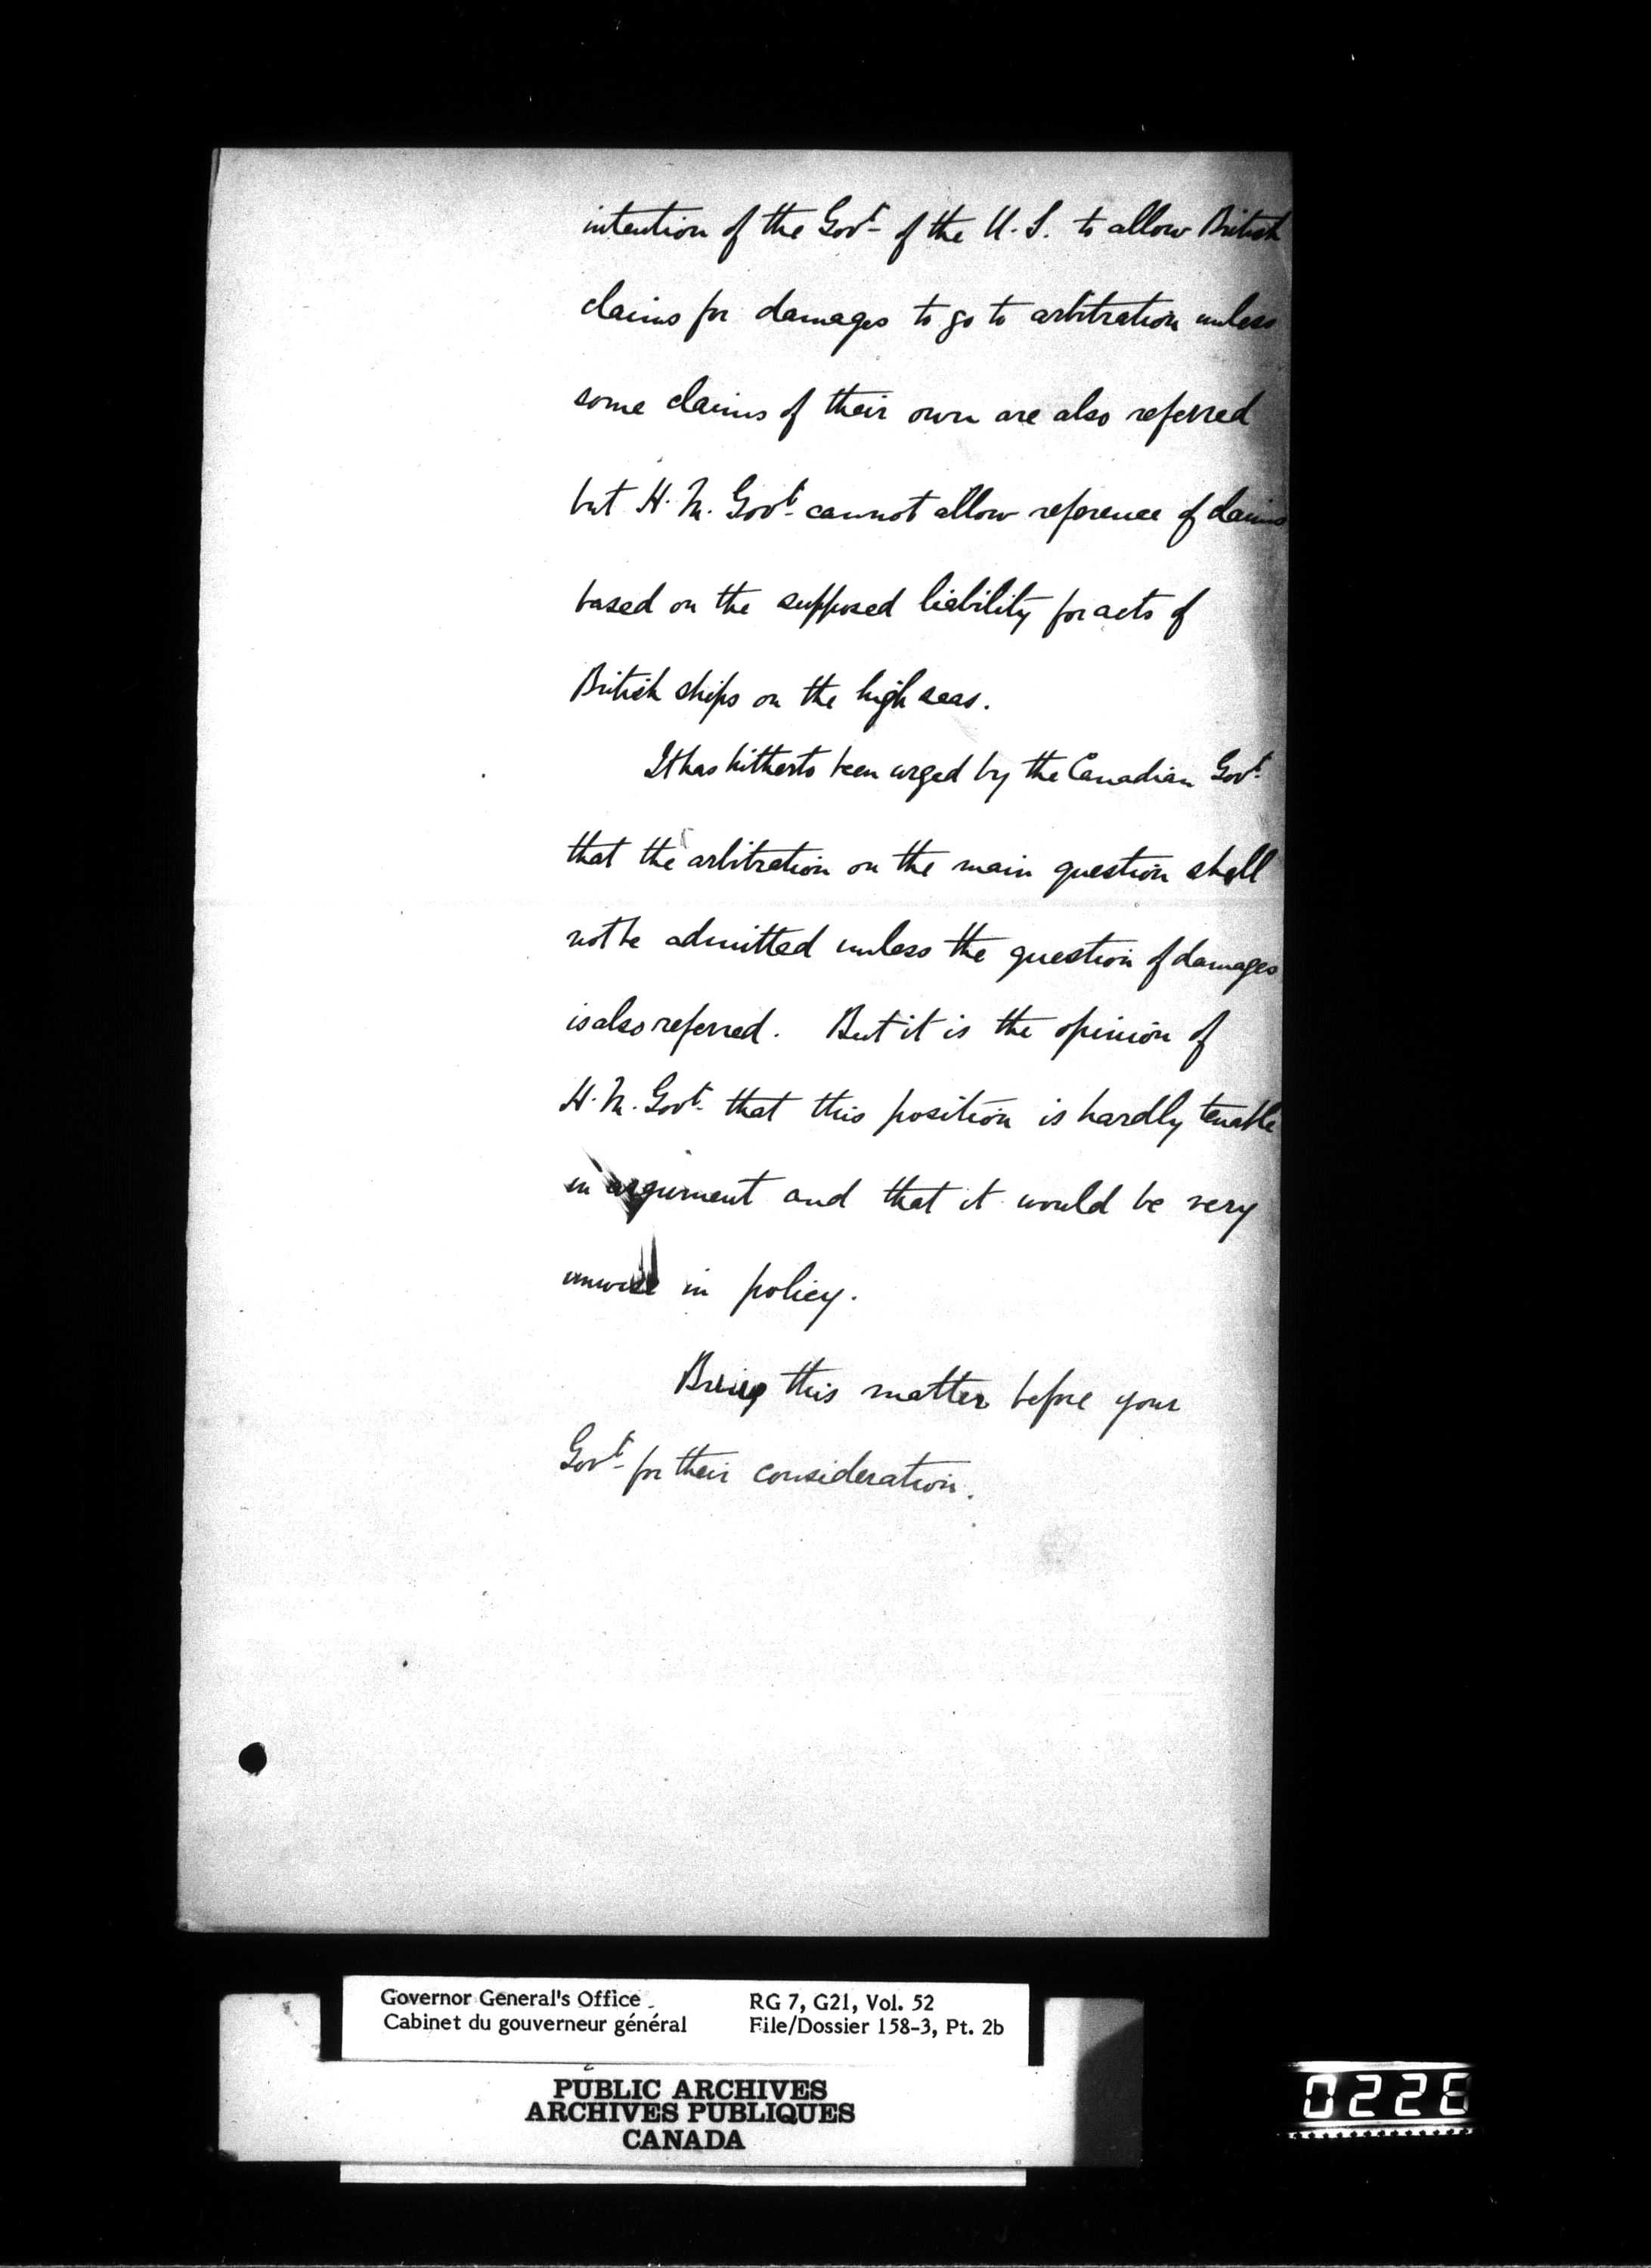 intention of the Govt. of the U.S. to allow British
claims for damages to go to arbitration unless
some claims of their own are also referred
but H.M. Govt. cannot allow reference of claims
based on the supposed liability for acts of
British ships on the high seas.
It has hitherto been urged by the Canadian Govt.
that the arbitration on the main question shall
not be admitted unless the question of damages
is also referred. But it is the opinion of
H.M. Govt. that this position is hardly tenable
in argument and that it would be very
unwise in policy.
Bring this matter before your
Govt. for their consideration.
Governor General's Office
Cabinet du gouverneur général
RG 7, G21, Vol. 52
File/Dossier 158-3, Pt. 2b
PUBLIC ARCHIVES
ARCHIVES PUBLIQUES
CANADA